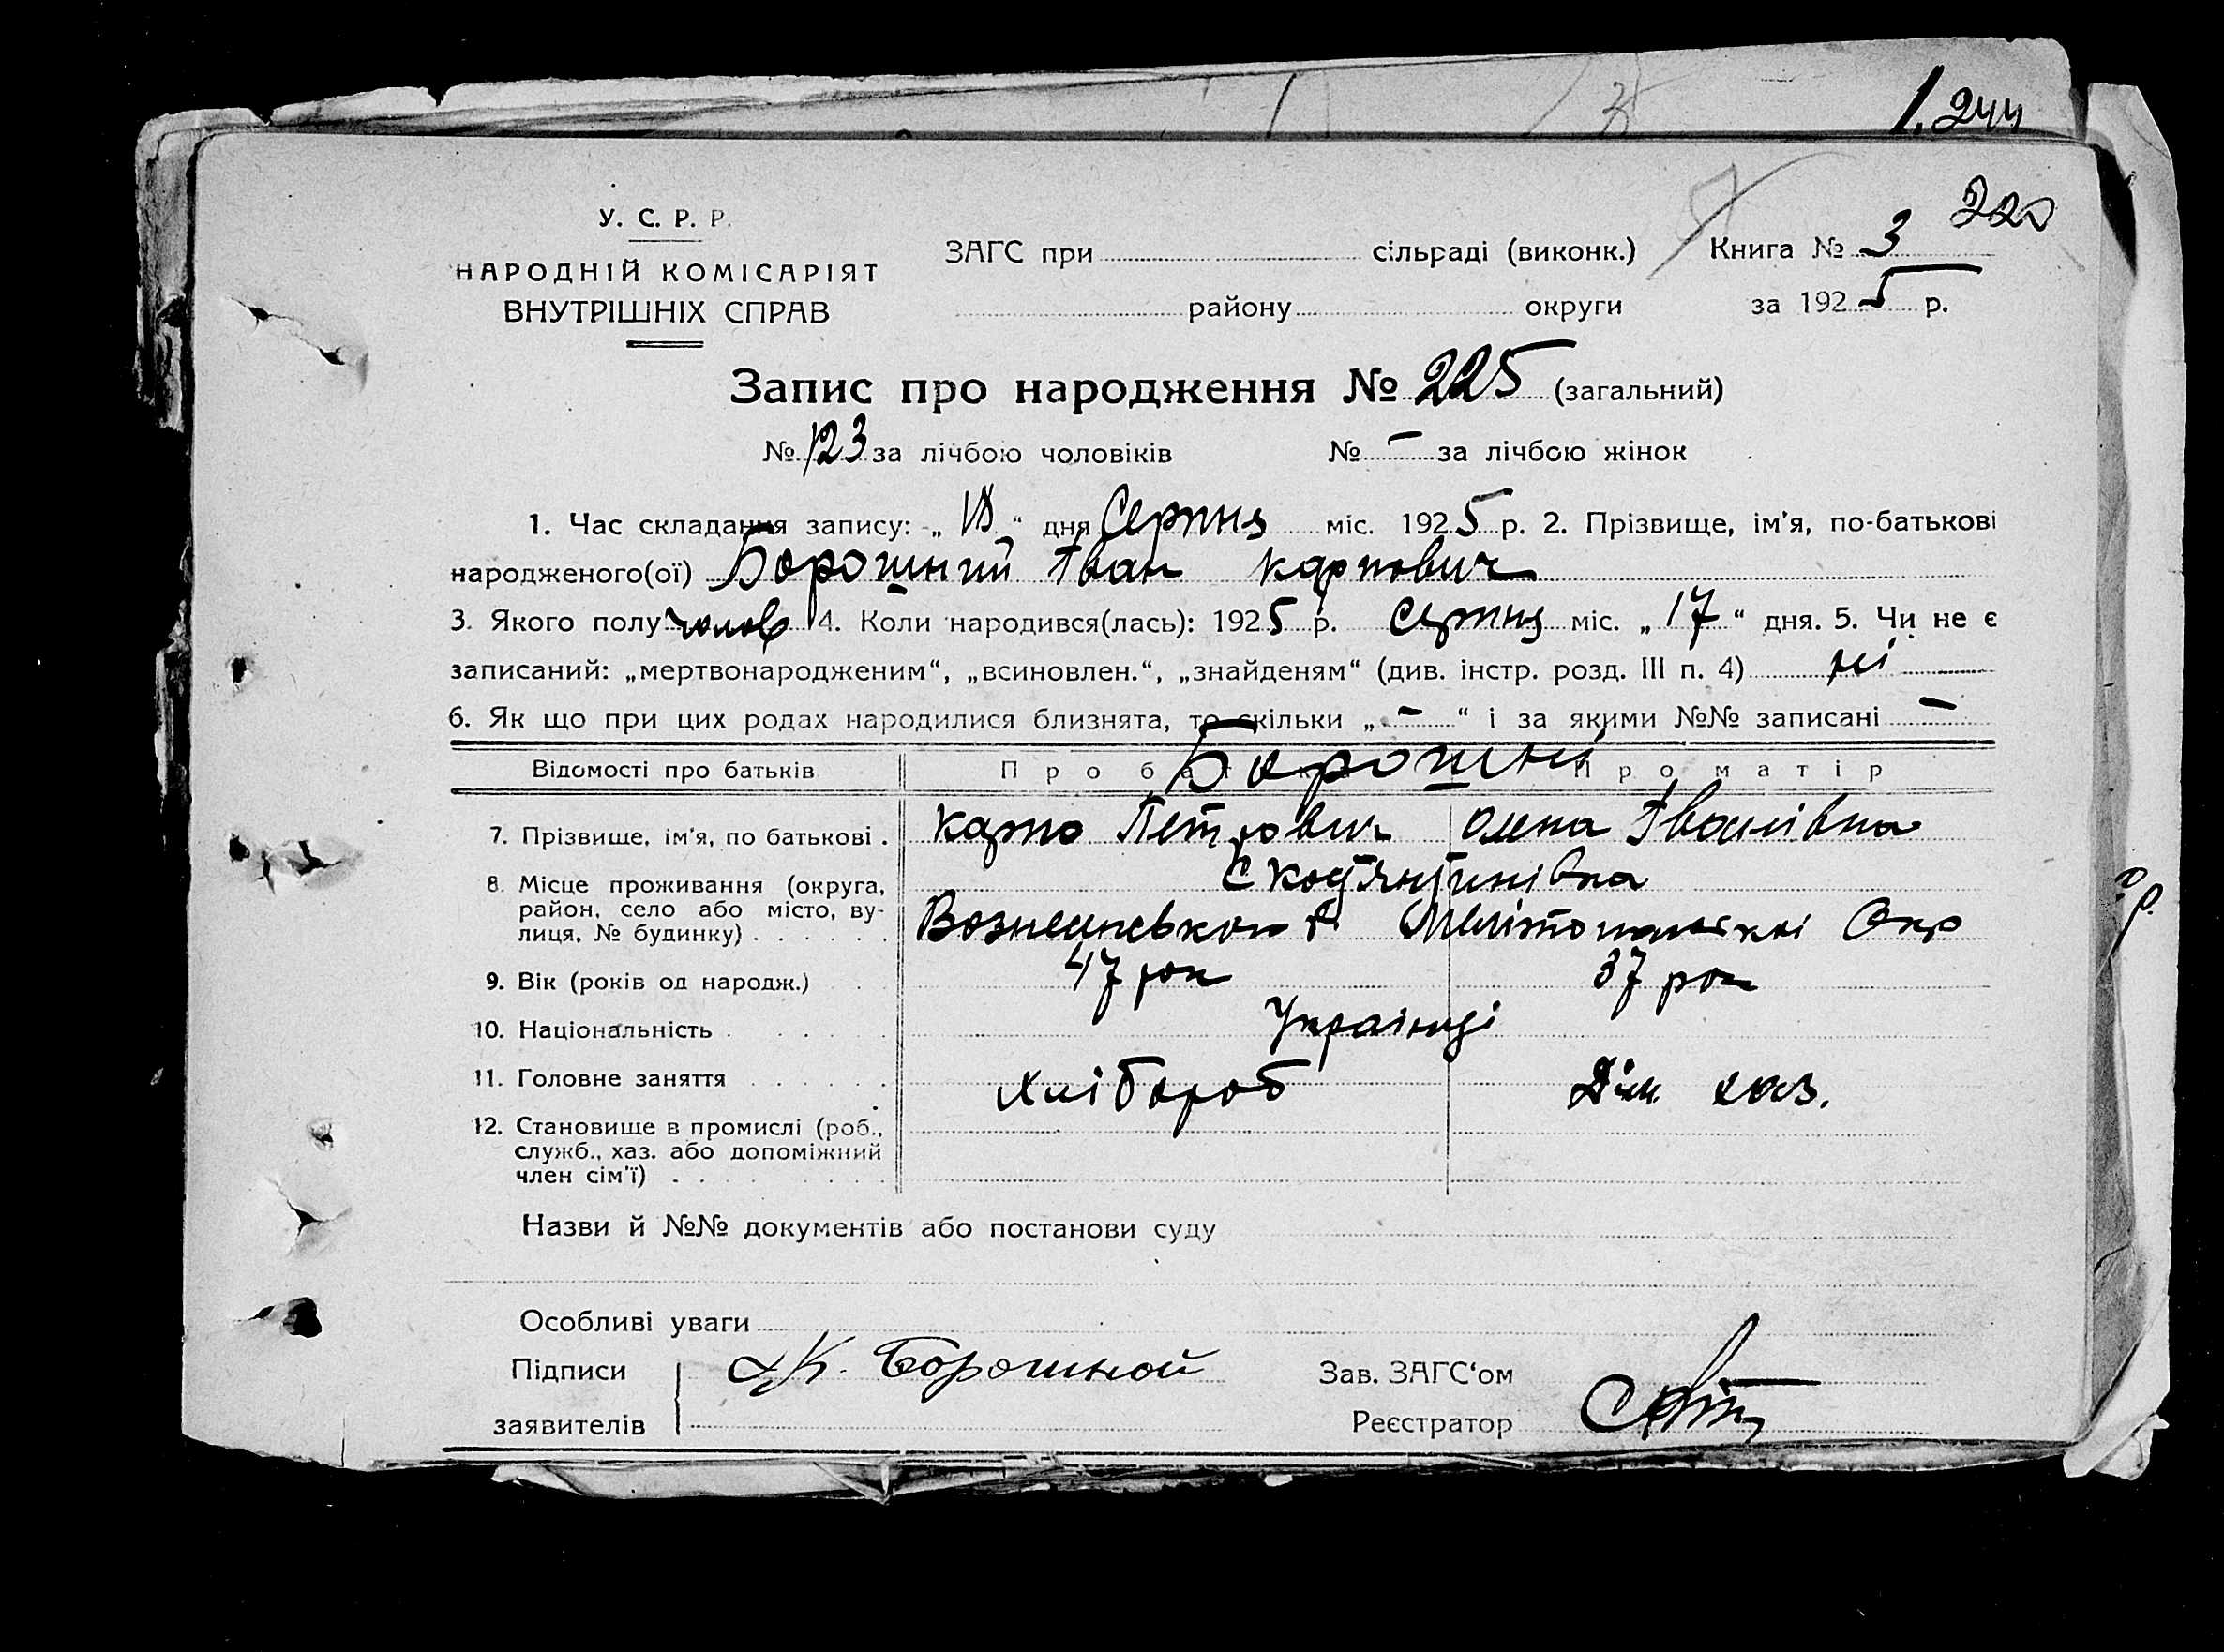 1.244
220
У. С. Р. Р.
НАРОДНІЙ КОМІСАРІЯТ
ВНУТРІШНІХ СПРАВ
ЗАГС при сільраді (виконк.) Книга № 3
району округи за 1925 р.
Запис про народження № 225 (загальний)
№ 123 за лічбою чоловіків № – за лічбою жінок
1. Час складання запису: „18“ дня Серпня міс. 1925 р. 2. Прізвище, ім'я, по-батькові
народженого(ої) Борошний Іван Карпович
3. Якого полу чолов 4. Коли народився(лась): 1925 р. Серпня міс. „17“ дня. 5. Чи не є
записаний: „мертвонародженим“, „всиновлен.“, „знайденям“ (див. інстр. розд. III п. 4) ні
6. Як що при цих родах народилися близнята, то скільки „–“ і за якими №№ записані –
Відомості про батьків Про батька Про матір
Борошні
7. Прізвище, ім'я, по батькові . Карпо Петрович Олена Іванівна
8. Місце проживання (округа, район, село або місто, вулиця, № будинку) . . . . . .
Вознесенського р. Мелітопольскоі Окр
9. Вік (років од народж.) 47 рок 37 рок
10. Національність Українці
11. Головне заняття Хлібороб Дім. хаз.
12. Становище в промислі (роб.,
служб., хаз. або допоміжний
член сім'ї)
Назви й №№ документів або постанови суду
Особливі уваги
Підписи К. Борошной Зав. ЗАГС'ом
заявителів Реєстратор